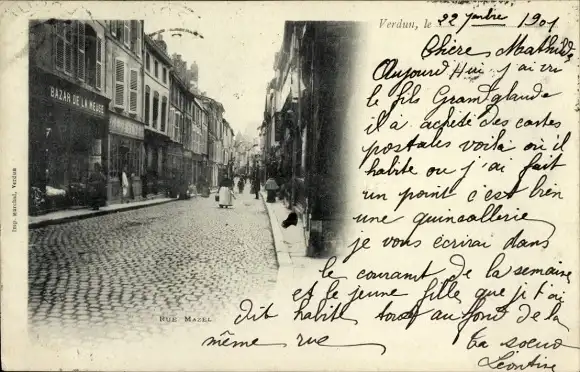 Verdun, le 22 juillet 1901
Chère Mathilde
Aujourd'Hui j'ai vu
le fils Grandglaude
il a acheté des cartes
postales voila ou il
habite ou j'ai fait
un point c'est bien
une quincallerie
je vous écrirai dans
le courant de la semaine
et le jeune fille que je t'ai
dit habite tout au fond de la
même rue
ta soeur
Léontine
BAZAR DE LA MEUSE
RUE MAZEL
Imp. maréchal, Verdun